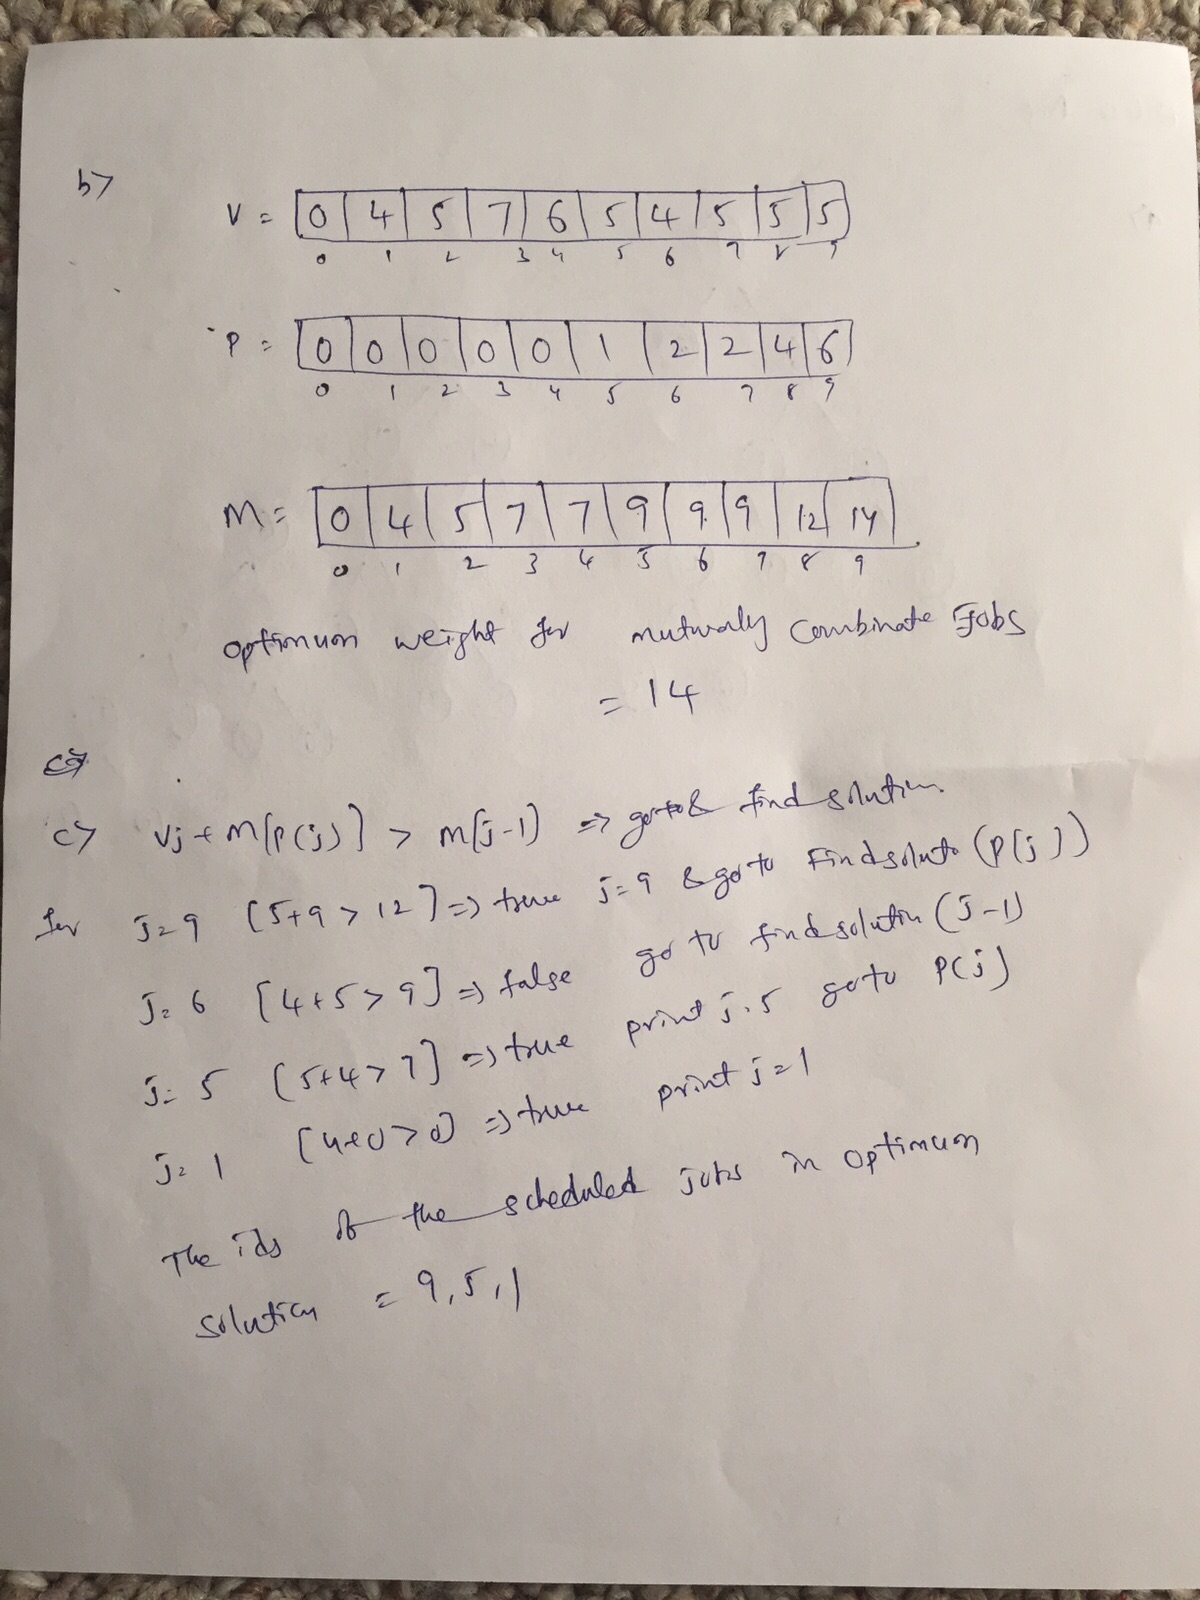 b>
V = 0 4 5 7 6 5 4 5 5 5
0 1 2 3 4 5 6 7 8 9
P = 0 0 0 0 0 1 2 2 4 6
0 1 2 3 4 5 6 7 8 9
M = 0 4 5 7 7 9 9 9 12 14
0 1 2 3 4 5 6 7 8 9
optimum weight for mutually combinate Jobs
= 14
c> Vj + M[P(j)] > M[j-1) => goto & find solution
for j=9 [5+9 > 12] => true j=9 & go to Findsolut (P(j))
j=6 [4+5 > 9] => false go to findsolution (j-1)
j=5 [5+4 > 7] => true print j=5 goto P(j)
j=1 [4+0 > 0] => true print j=1
The ids of the scheduled jobs in optimum
solution = 9, 5, 1